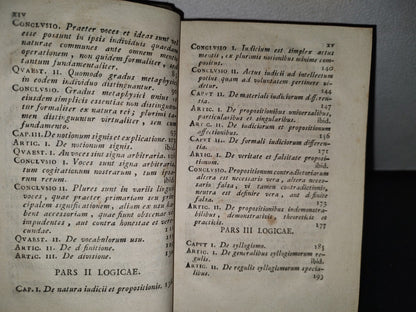 XIV
CONCLVSIO. Praeter voces et ideas sunt vel
in ipsis individuis quaedam
naturae communes ante omnem mentis
operationem, non quidem formaliter, sed
tantum fundamentaliter.
QVAEST. II. Quomodo gradus metaphysici
in eodem individuo distinguuntur.
CONCLVSIO. Gradus metaphysici unius et
eiusdem simplicis essentiae non distinguuntur
formaliter ex natura rei, sed per
mentem distinguuntur virtualiter, seu cum
fundamento.
CAP. III. De notionum signis et explicatione.
ARTIC. I. De notionum signis. ibid.
QVAEST. I. An voces sint signa arbitraria.
CONCLVSIO I. Voces sunt signa arbitraria,
tum cogitationum nostrarum, tum ipsarum
rerum. ibid.
CONCLVSIO II. Plures sunt in variis linguis
voces, quae praeter primariam seu principalem
significationem, aliam ex usu habent
accessoriam, quae fiunt obscoenae
impudentes, aut contra honestae et verecundae.
QVAEST. II. De vocabulorum usu.
ARTIC. II. De definitione.
ARTIC. III. De divisione.
PARS II LOGICAE.
CAP. I. De natura iudicii et propositionis.
XV
CONCLVSIO I. Iudicium est simplex actus
mentis, ex pluribus notionibus minime compositus.
140
CONCLVSIO II. Actus iudicii ad intellectum
potius quam ad voluntatem pertinet.
144
CAPVT II. De materiali iudiciorum differentia.
147
ARTIC. I. De propositionibus universalibus,
particularibus et singularibus. ibid.
ARTIC. II. De iudiciorum et propositionum
affectionibus. 156
CAPVT II. De formali iudiciorum differentia.
ARTIC. I. De veritate et falsitate propositionum.
ibid.
CONCLVSIO. Propositionum contradictoriarum
altera est necessario vera, altera necessario
falsa, vi tamen contradictionis,
neutra est definite vera aut definite
falsa.
ARTIC. II. De propositionibus indemonstrabilibus,
demonstrativis, theoreticis et
practicis. 177
PARS III LOGICAE.
CAPVT I. De syllogismo. 185
ARTIC. I. De generalibus syllogismorum
regulis. ibid.
ARTIC. II. De regulis syllogismorum specialibus.
193